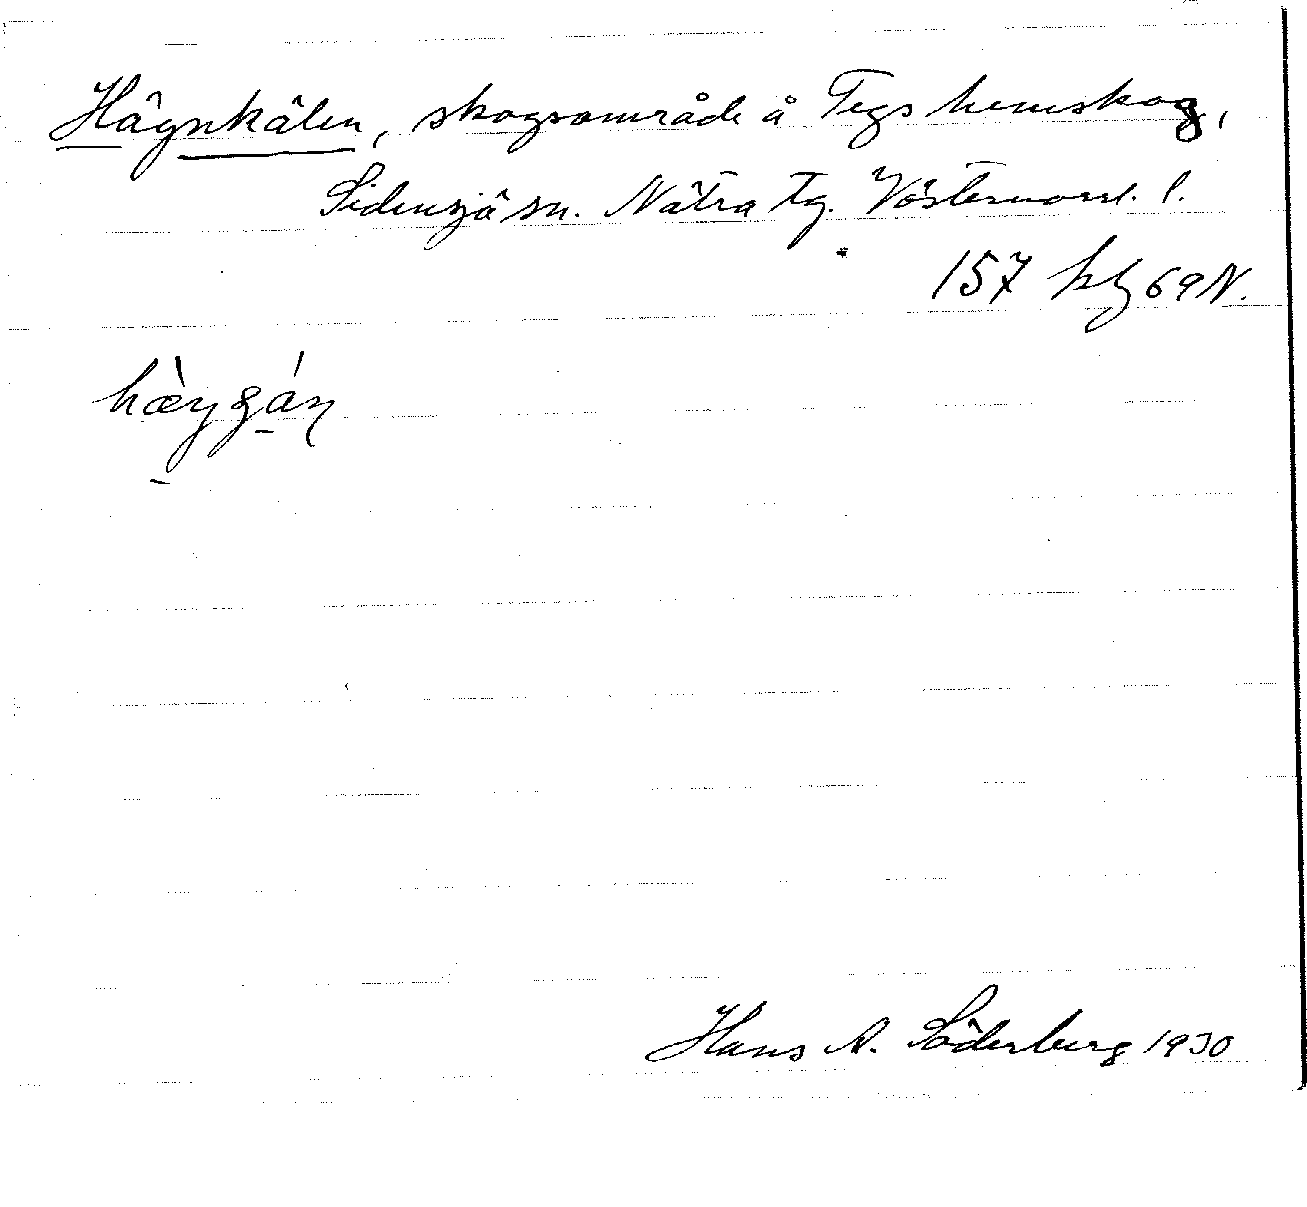 Högnkälen, skogsområde å Tegs hemskog,
Sidensjö sn. Nätra tg. Västernorrl. l.
157 69 N.
hæŋgáŋ
Hans A. Söderberg 1930